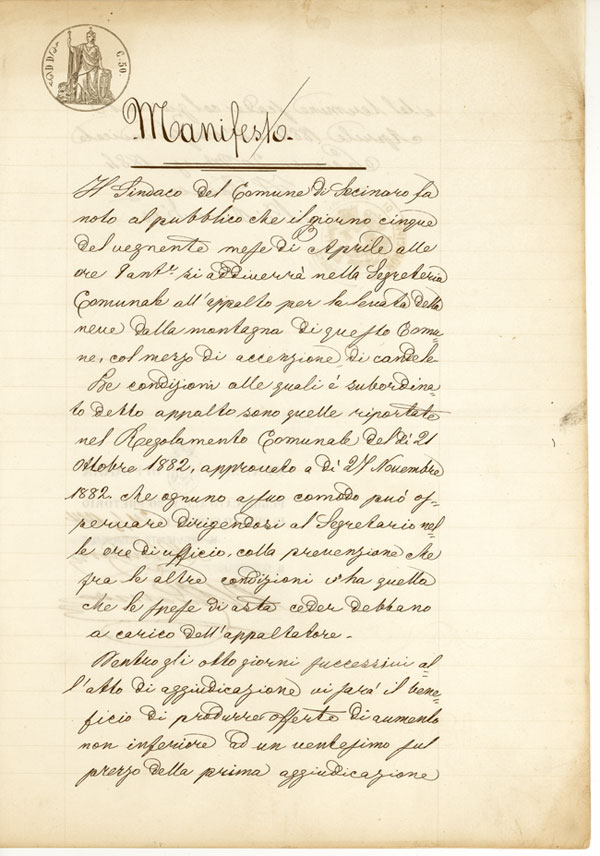 C. 50.
Manifesto.
Il Sindaco del Comune di Secinaro fa
noto al pubblico che il giorno cinque
del vegnente mese di Aprile alle
ore antr. si addiverrà nella Segreteria
Comunale all'appalto per la levata della
neve dalla montagna di questo Comu=
ne, col mezzo di accenzione di candele.
Le condizioni alle quali è subordina=
to detto appalto sono quelle riportate
nel Regolamento Comunale del dì 21
Ottobre 1882, approvato a dì 27 Novembre
1882. che ognuno a suo comodo può os=
servare dirigendosi al Segretario nel=
le ore di ufficio, colla prevenzione che
fra le altre condizioni v'ha quella
che le spese di asta ceder debbano
a carico dell'appaltatore.
Dentro gli otto giorni successivi al=
l'atto di aggiudicazione vi sarà il bene=
ficio di produrre offerte di aumento
non inferiore ad un ventesimo sul
prezzo della prima aggiudicazione